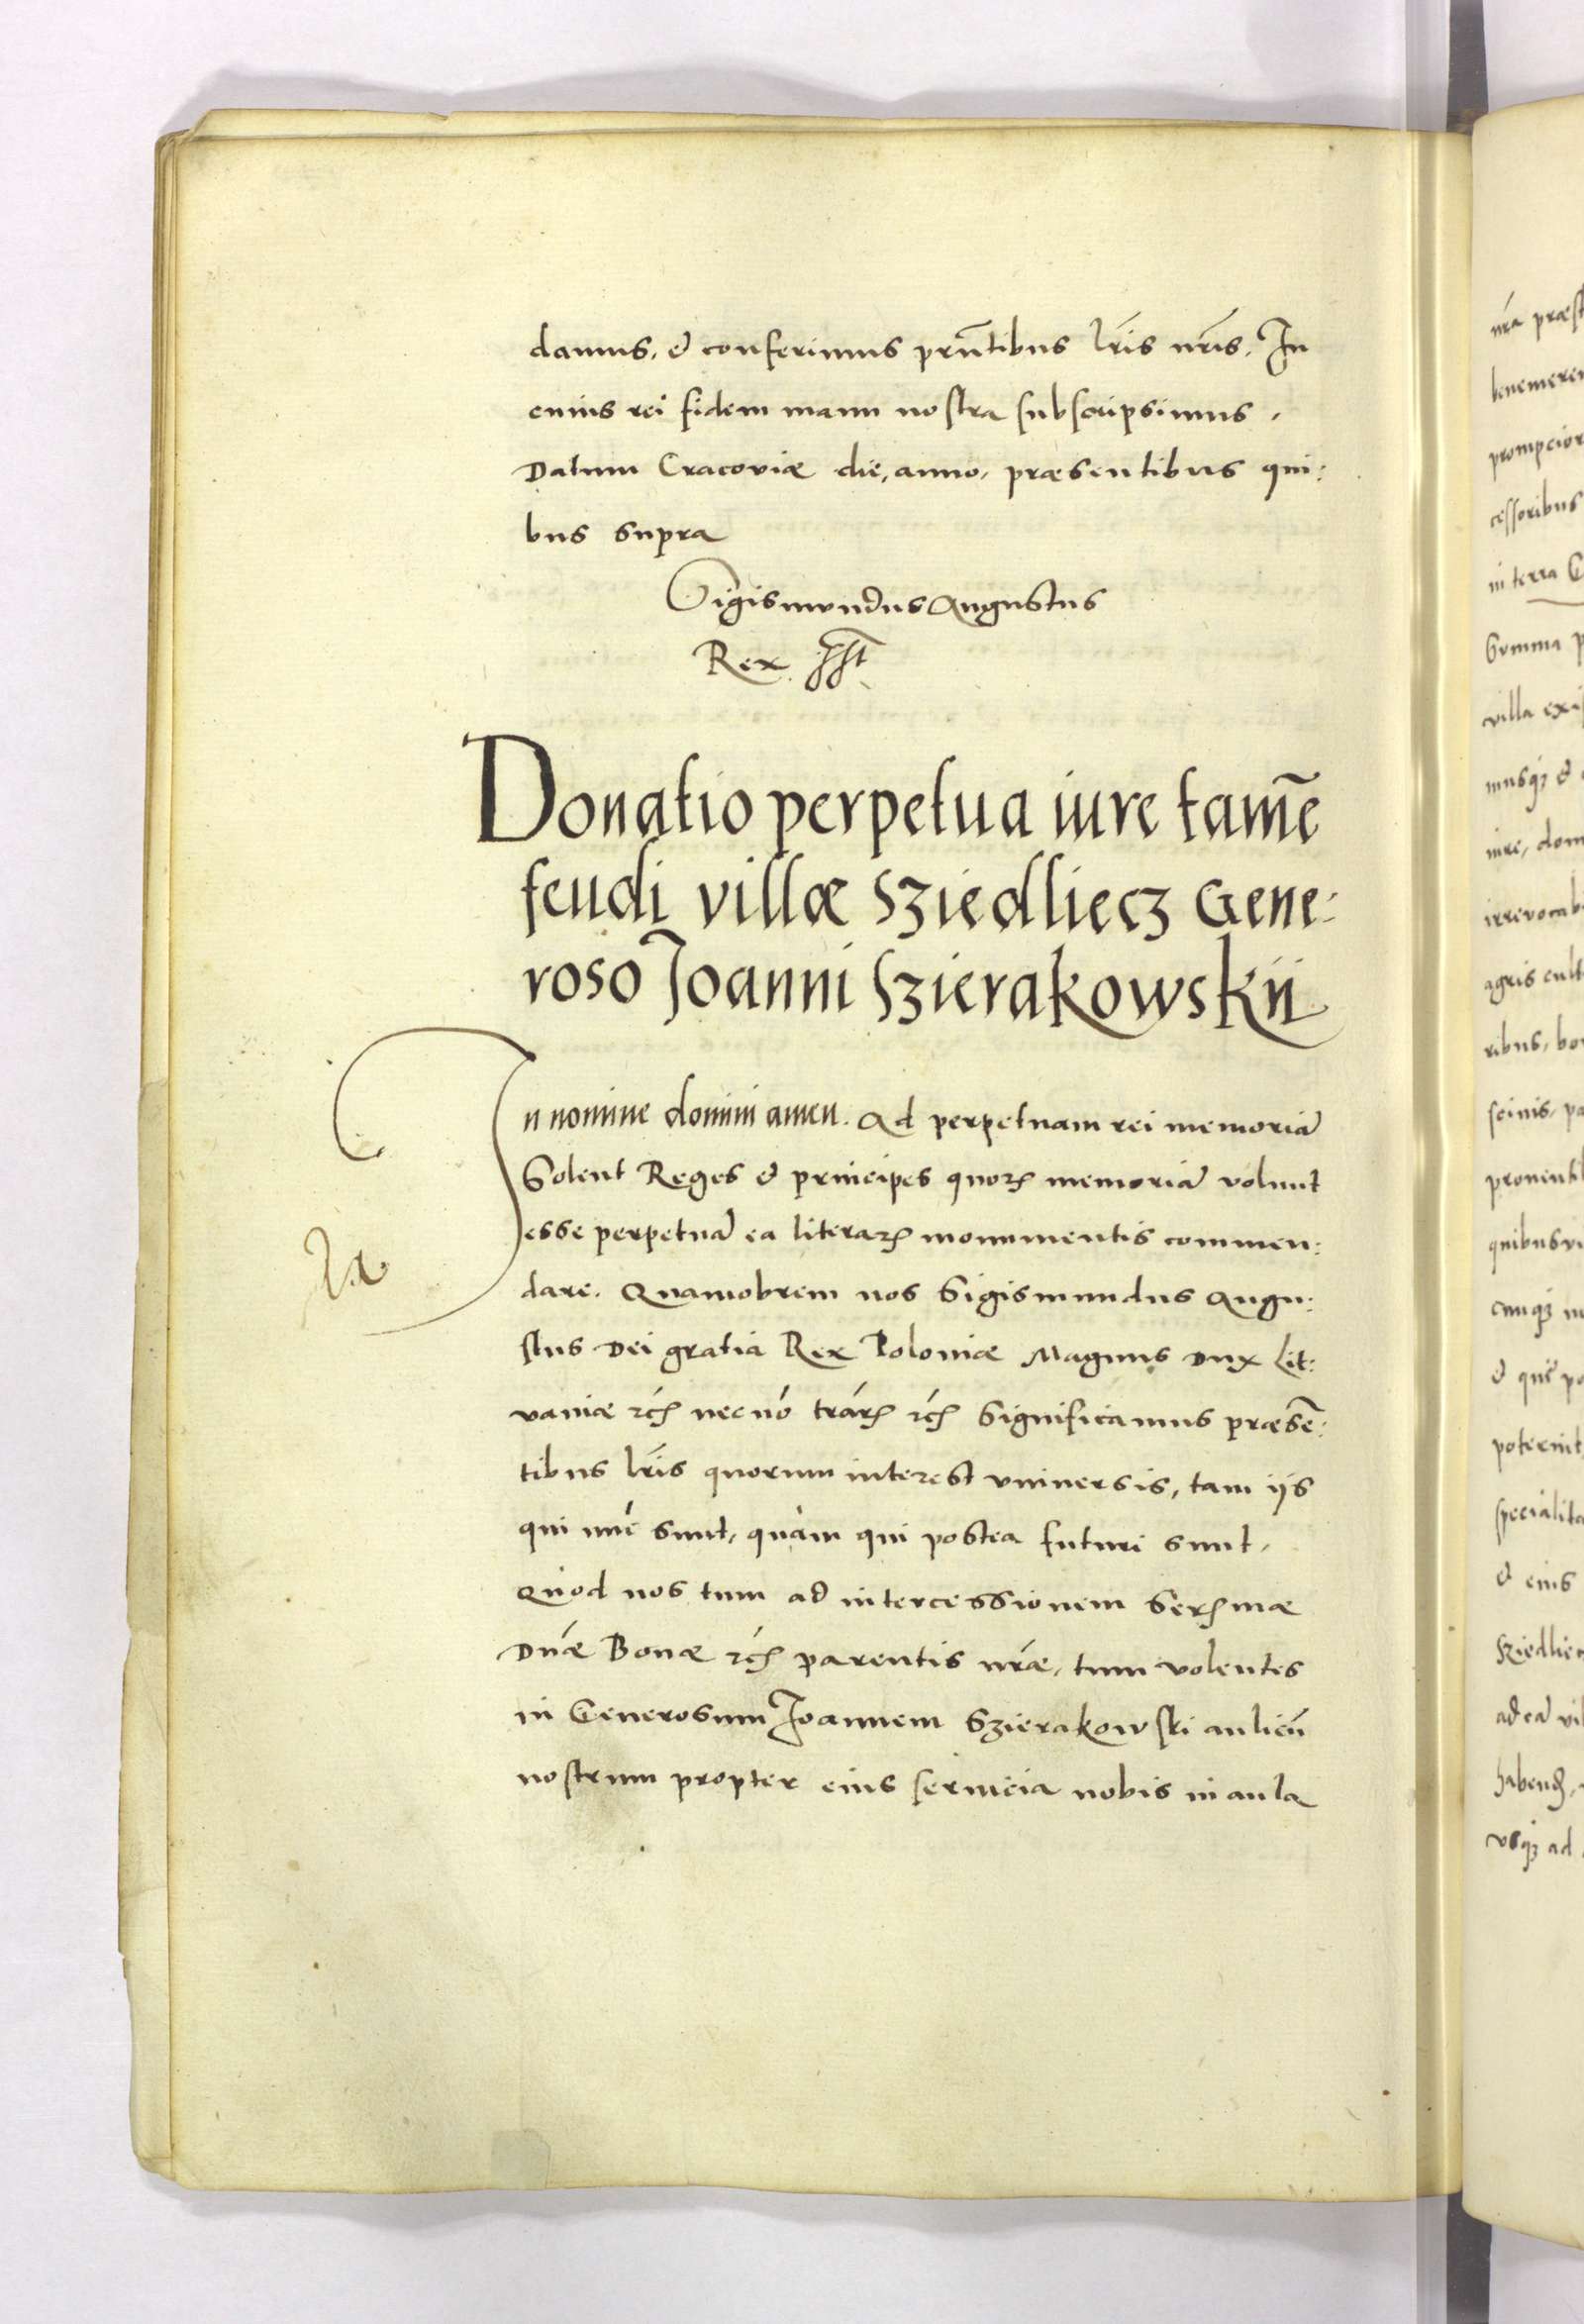 damus, et conferimus prn̄tibus lr̄is nr̄is. In
cuius rei fidem manu nostra subscripsimus.
Datum Cracoviæ die, anno, præsentibus qui:
bus supra
Sigismundus Augustus
Rex sst
Donatio perpetua iure tamē
feudi villæ Sziedliecz Gene:
roso Joanni Szierakowskij
In nomine domini amen. Ad perpetuam rei memoriā
Solent Reges et principes quorꝝ memoriā volunt
esse perpetuā ea literarꝝ monumentis commen:
dare. Quamobrem nos Sigismundus Augu:
stus Dei gratia Rex Poloniæ Magnus Dux Lit:
vaniæ ꝛcꝭ necnō trārꝝ ꝛcꝭ Significamus præsē:
tibus lr̄is quorum interest vniuersis, tam ijs
qui nūc sunt, quàm qui postea futuri sunt,
Quod nos tum ad intercessionem Serꝭmæ
Dn̄æ Bonæ ꝛcꝭ parentis nr̄æ, tum volentes
in Generosum Joannem Szierakowski aulicū
nostrum propter eius seruicia nobis in aula
nr̄a præst
benemeren
prompcior
cessoribus
in terra
Summa p
villa exi
musqꝫ et
iure, dom
irreuocab
agris cult
ribus, bor
scinis, pa
prouentib
quibusvi
cunqꝫ
et quē po
poterint
specialita
et eius
Sziedliec
ad eā vil
habendꝭ,
vsqꝫ ad